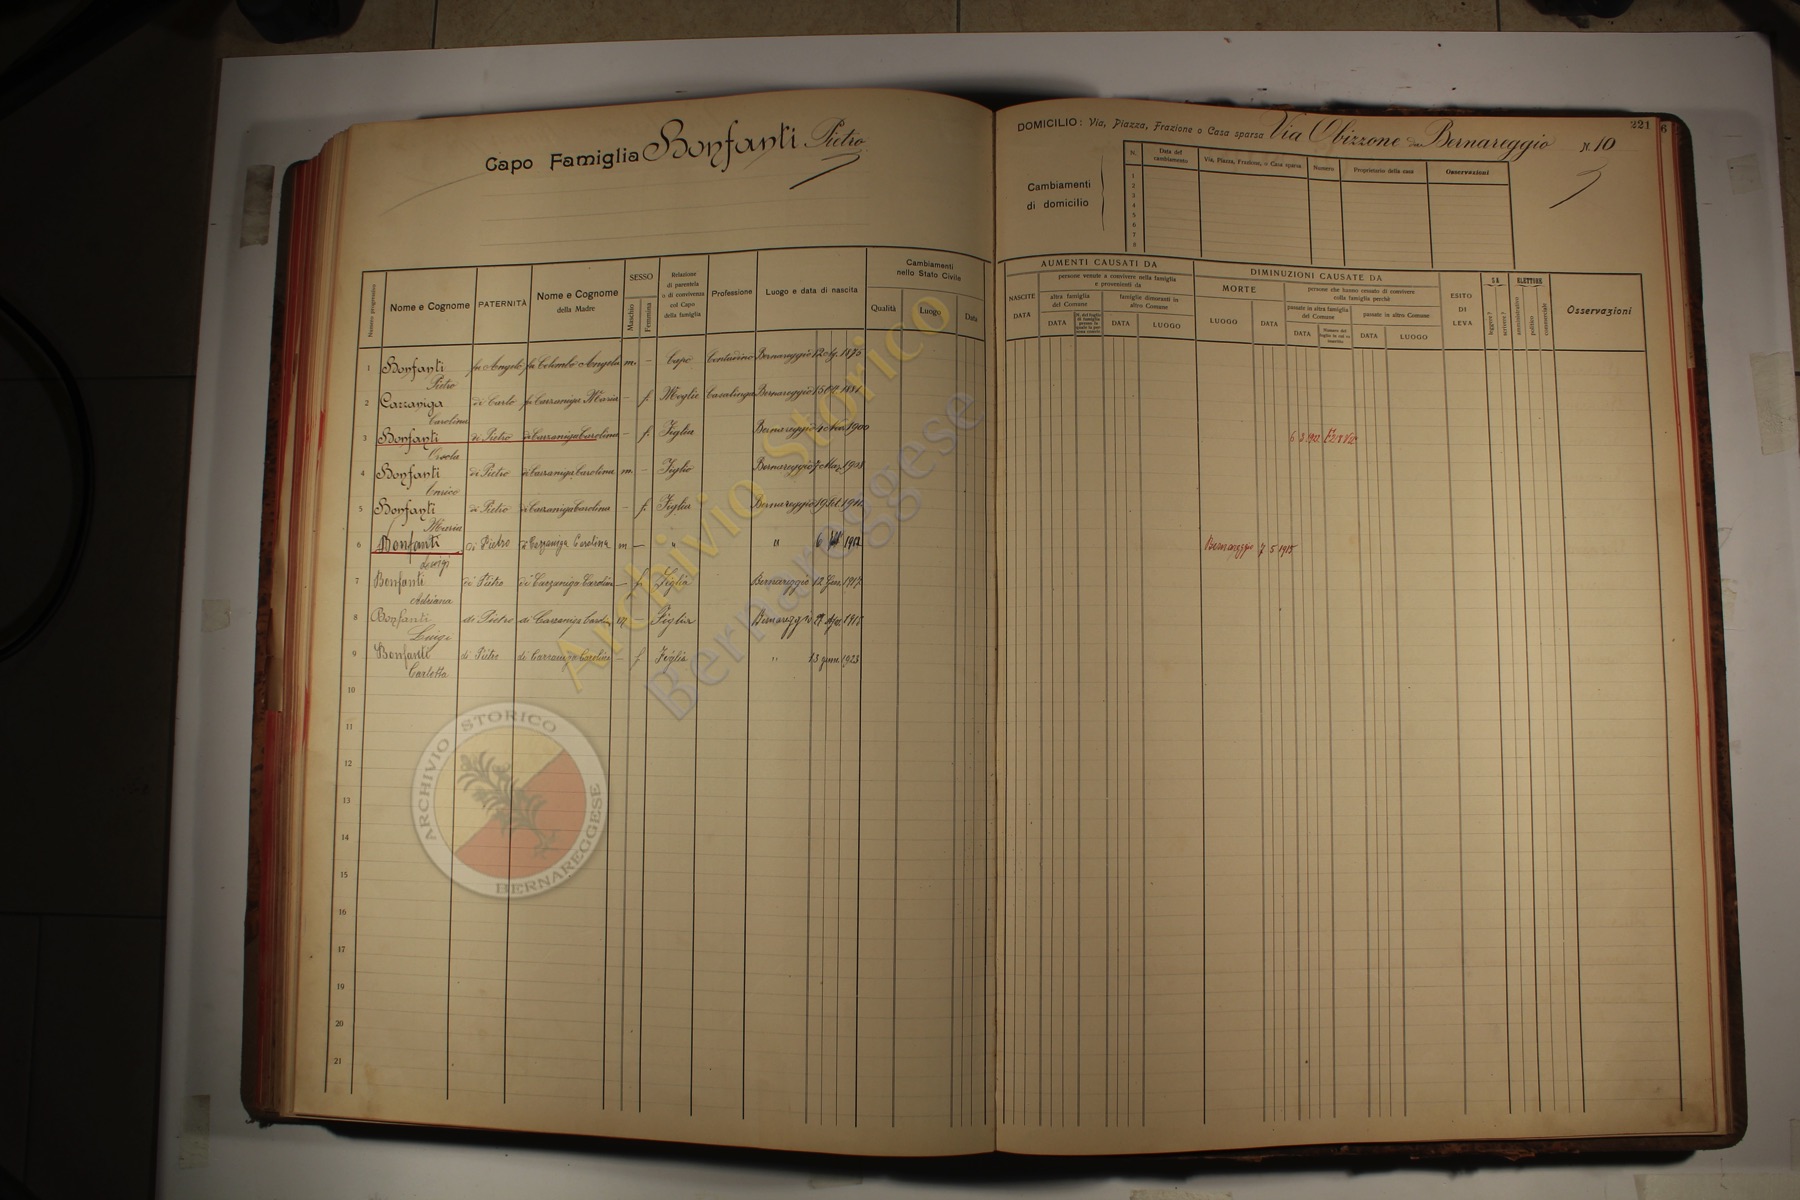 Capo Famiglia Bonfanti Pietro
DOMICILIO: Via, Piazza, Frazione o Casa sparsa Via Obizzone da Bernareggio N. 10
221
6
Cambiamenti
di domicilio
N. Data del cambiamento Via, Piazza, Frazione, o Casa sparsa Numero Proprietario della casa Osservazioni
1
2
3
4
5
6
7
8
Numero progressivo
Nome e Cognome
PATERNITÀ
Nome e Cognome della Madre
SESSO
Maschio
Femmina
Relazione di parentela o di convivenza col Capo della famiglia
Professione
Luogo e data di nascita
Cambiamenti nello Stato Civile
Qualità
Luogo
Data
AUMENTI CAUSATI DA
NASCITE
DATA
persone venute a convivere nella famiglia e provenienti da
altra famiglia del Comune
DATA
famiglie dimoranti in altro Comune
DATA
LUOGO
DIMINUZIONI CAUSATE DA
MORTE
LUOGO
DATA
persone che hanno cessato di convivere colla famiglia perchè
passate in altra famiglia del Comune
DATA
passate in altro Comune
DATA
LUOGO
ESITO DI LEVA
SA
leggere?
scrivere?
ELETTORE
amministrativo
politico
commerciale
Osservazioni
1 Bonfanti Pietro fu Angelo fu Colombo Angela m. – Capo Contadino Bernareggio 12 1875
2 Cazzaniga Carolina di Carlo Cazzaniga Maria – f. Moglie Casalinga Bernareggio 15 1881
3 Bonfanti Orsola di Pietro di Cazzaniga Carolina – f. Figlia Bernareggio 4 Nov. 1900 6 3 1922
4 Bonfanti Enrico di Pietro di Cazzaniga Carolina m. – Figlio Bernareggio 7 Mar. 1908
5 Bonfanti Maria di Pietro di Cazzaniga Carolina – f. Figlia Bernareggio 19 1911
6 Bonfanti Luigi di Pietro di Cazzaniga Carolina m – " " 6 1912 Bernareggio 7 5 1915
7 Bonfanti Adriana di Pietro di Cazzaniga Carolina – f. Figlia Bernareggio 12 Gen. 1917
8 Bonfanti Luigi di Pietro di Cazzaniga Carolin m Figlia Bernareggio
9 Bonfanti Carletta di Pietro di Cazzaniga Carolina – f Figlia " 13 genn. 1923
10
11
12
13
14
15
16
17
18
19
20
21
Archivio Storico
Bernareggese
ARCHIVIO STORICO
BERNAREGGESE